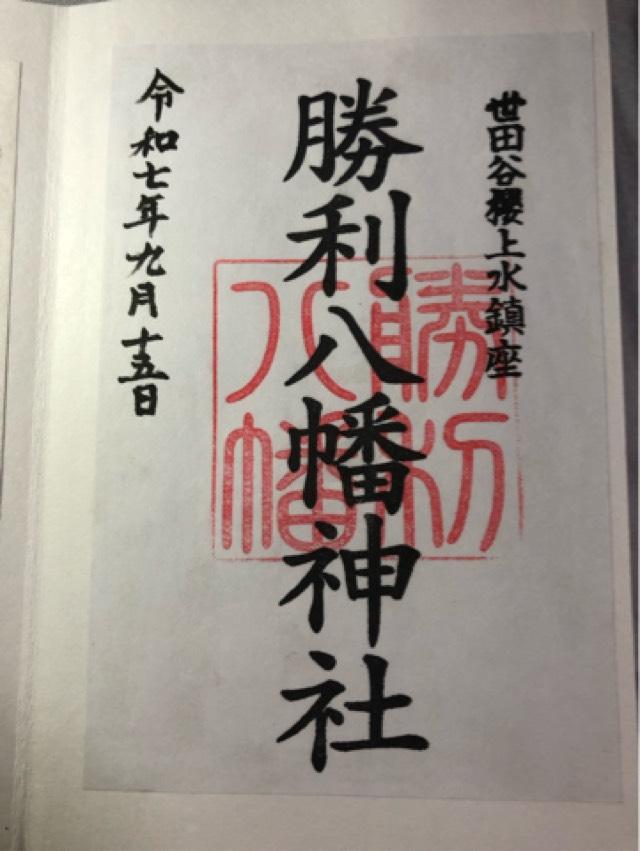 世田谷櫻上水鎮座
勝利八幡神社
勝利
八幡
令和七年九月十五日